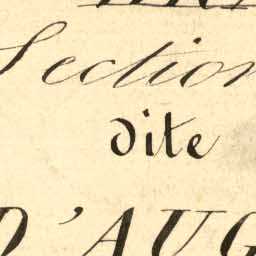 Section
dite
D'AUG